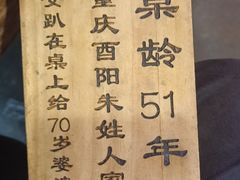 桌龄51年
重庆酉阳朱姓人家
趴在桌上给70岁婆